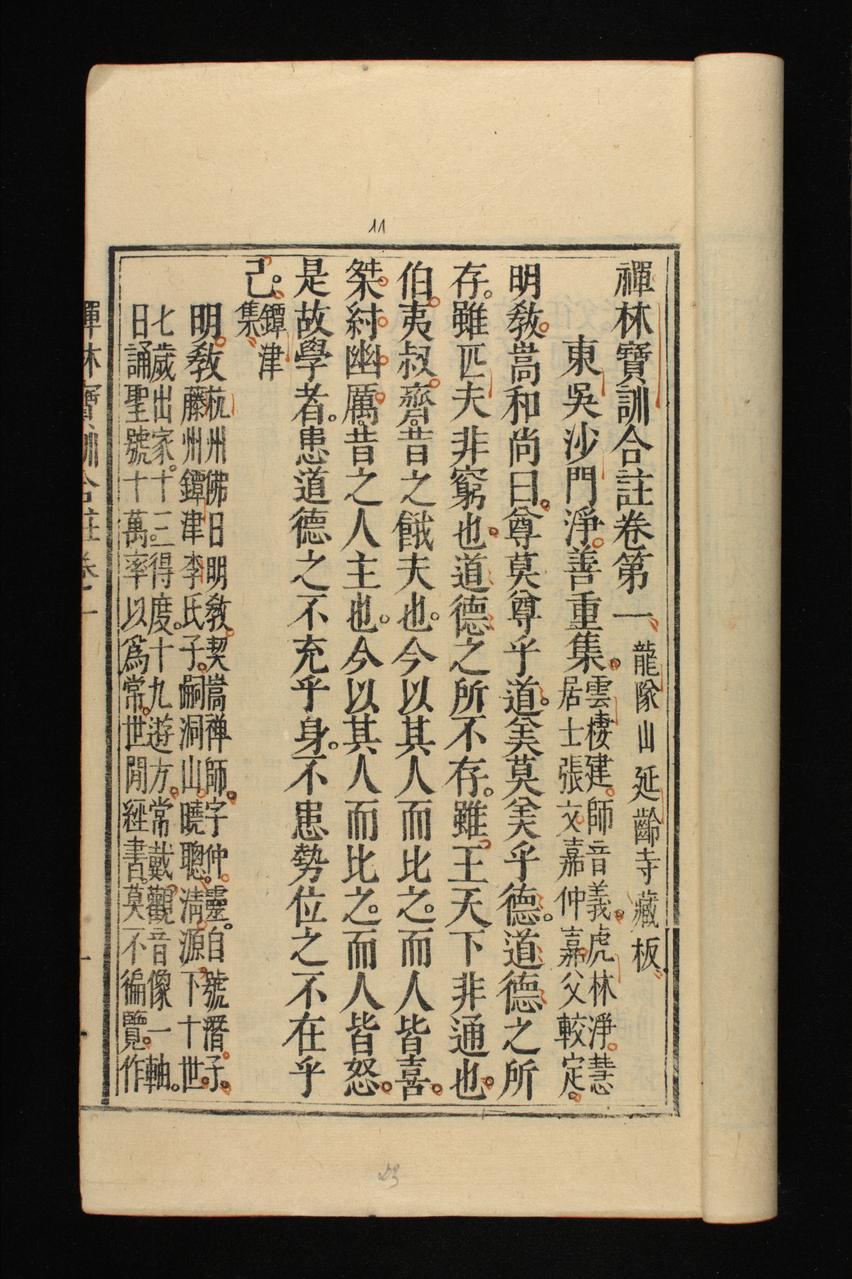 11
禪林寶訓合註卷第一 龍隊山延齡寺藏板
東吳沙門淨善重集 雲棲建師音義虎林淨慧
居士張文嘉仲嘉父較定
明敎嵩和尚曰。尊莫尊乎道。美莫美乎德。道德之所
存。雖匹夫非窮也。道德之所不存。雖王天下非通也。
伯夷叔齊。昔之餓夫也。今以其人而比之。而人皆喜。
桀紂幽厲。昔之人主也。今以其人而比之。而人皆怒。
是故學者。患道德之不充乎身。不患勢位之不在乎
己。鐔津
集
明敎杭州佛日明敎契嵩禅師。字仲靈。自號潛子。
藤州鐔津李氏子。嗣洞山曉聰。淸源下十世。
七歲出家。十三得度。十九遊方。常戴觀音像一軸。
日誦聖號十萬。率以爲常。世閒經書。莫不徧覽。作
禪林寶訓合註卷一
一
23